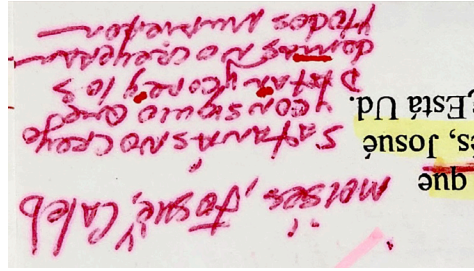 que
es, Josué
¿Está Ud.
moisés, Josué, y Caleb
Satanás NO creyo
y consiguio que
DATAN y Core y los
demas NO creyeran
y todos murieron